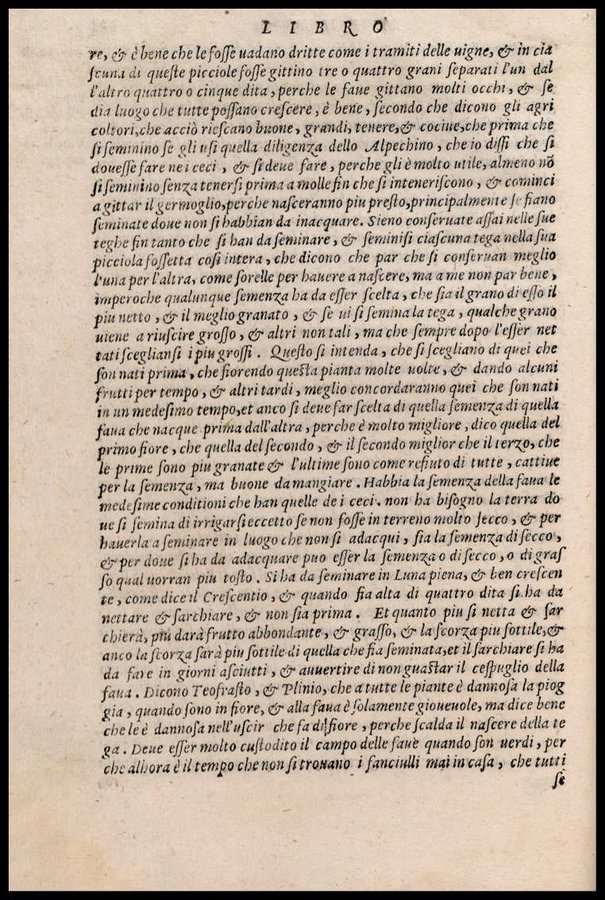 LIBRO
re, & è bene che le fosse uadano dritte come i tramiti delle uigne, & in cia
scuna di queste picciole fosse gittino tre o quattro grani separati l'un dal
l'altro quattro o cinque dita, perche le faue gittano molti occhi, & se
dia luogo che tutte possano crescere, è bene, secondo che dicono gli agri
coltori, che acciò riescano buone, grandi, tenere, & cociue, che prima che
si seminino se gli usi quella diligenza dello Alpechino, che io dissi che si
douesse fare nei ceci, & si deue fare, perche gli è molto utile, almeno nō
si seminino senza tenersi prima a molle fin che si inteneriscono, & cominci
a gittar il germoglio, perche nasceranno piu presto, principalmente se siano
seminate doue non si habbian da inacquare. Sieno conseruate assai nelle sue
teghe fin tanto che si han da seminare, & seminisi ciascuna tega nella sua
picciola fossetta cosi intera, che dicono che par che si conseruan meglio
l'una per l'altra, come sorelle per hauere a nascere, ma a me non par bene,
imperoche qualunque semenza ha da esser scelta, che sia il grano di esso il
piu netto, & il meglio granato, & se ui si semina la tega, qualche grano
uiene a riuscire grosso, & altri non tali, ma che sempre dopo l'esser net
tati sceglians i i piu grossi. Questo si intenda, che si scegliano di quei che
son nati prima, che fiorendo questa pianta molte uolte, & dando alcuni
frutti per tempo, & altri tardi, meglio concordaranno quei che son nati
in un medesimo tempo, et anco si deue far scelta di quella semenza di quella
faua che nacque prima dall'altra, perche è molto migliore, dico quella del
primo fiore, che quella del secondo, & il secondo miglior che il terzo, che
le prime sono piu granate & l'ultime sono come refiuto di tutte, cattiue
per la semenza, ma buone da mangiare. Habbia la semenza della faua le
medesime conditioni che han quelle de i ceci. non ha bisogno la terra do
ue si semina di irrigarsi eccetto se non fosse in terreno molto secco, & per
hauerla a seminare in luogo che non si adacqui, sia la semenza di secco,
& per doue si ha da adacquare puo esser la semenza o di secco, o di gras
so qual uorran piu tosto. Si ha da seminare in Luna piena, & ben crescen
te, come dice il Crescentio, & quando sia alta di quattro dita si ha da
nettare & sarchiare, & non sia prima. Et quanto piu si netta & sar
chierà, piu darà frutto abbondante, & grasso, & la scorza piu sottile, &
anco la scorza sarà piu sottile di quella che sia seminata, et il sarchiare si ha
da fare in giorni asciutti, & auuertire di non guastar il cespuglio della
faua. Dicono Teofrasto, & Plinio, che a tutte le piante è dannosa la piog
gia, quando sono in fiore, & alla faua è solamente gioueuole, ma dice bene
che le è dannosa nell'uscir che fa di fiore, perche scalda il nascere della te
ga. Deue esser molto custodito il campo delle faue quando son uerdi, per
che alhora è il tempo che non si trouano i fanciulli mai in casa, che tutti
se